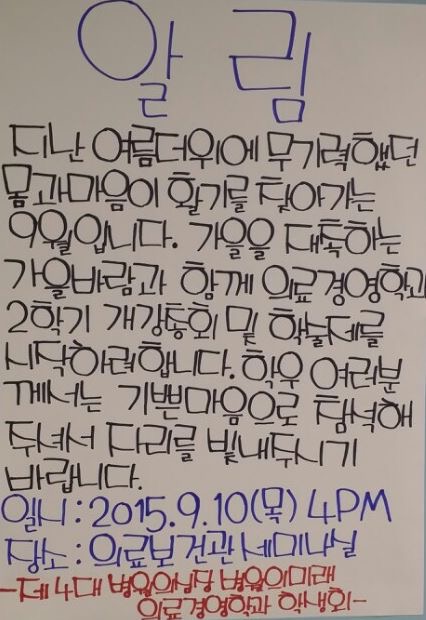 알림
지난 여름더위에 무기력했던
몸과마음이 활기를 찾아가는
9월입니다. 가을을 재촉하는
가을바람과 함께 의료경영학과
2학기 개강총회 및 학술제를
시작하려합니다. 학우 여러분
께서는 기쁜마음으로 참석해
주셔서 자리를 빛내주시기
바랍니다.
일시:2015.9.10(목) 4PM
장소:의료보건관 세미나실
-제4대 병원의심장 병원의미래
의료경영학과 학생회-